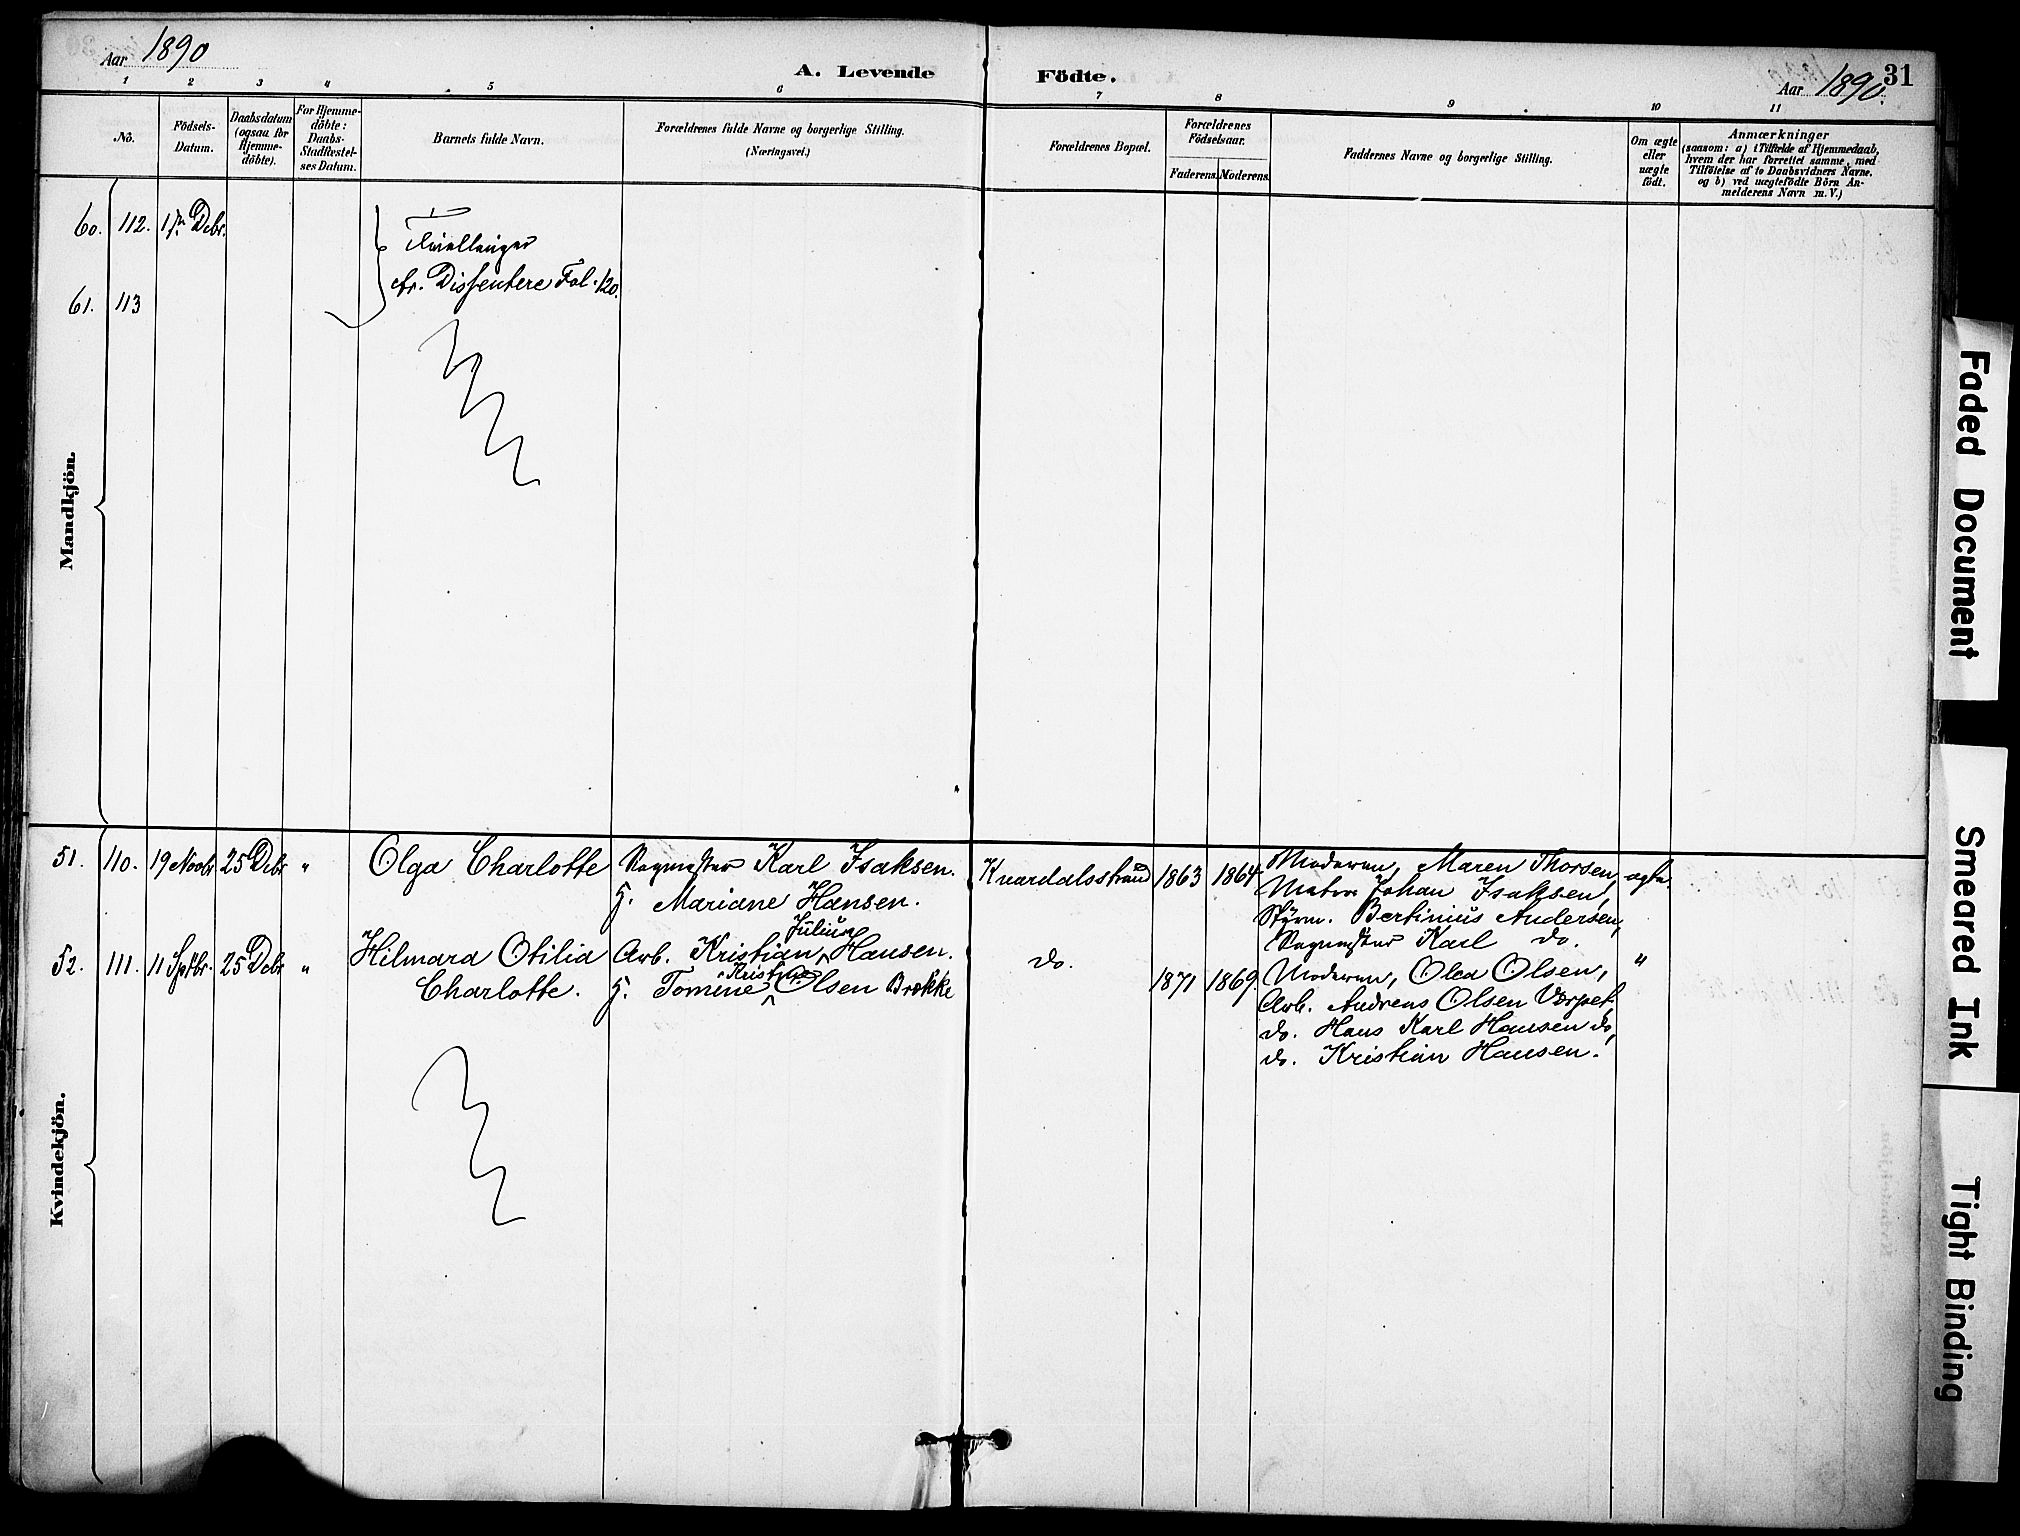 Aar 1890
A. Levende Födte.
Aar 1890.
31
1 2 3 4 5 6 7 8 9 10 11
No.
Födsels-
Datum.
Daabsdatum
(ogsaa for
Hjemme-
döbte).
For Hjemme-
döbte:
Daabs-
Stadfæstel-
ses Datum.
Barnets fulde Navn.
Forældrenes fulde Navne og borgerlige Stilling.
(Næringsvei.)
Forældrenes Bopæl.
Forældrenes
Födselsaar.
Faderens. Moderens.
Faddernes Navne og borgerlige Stilling.
Om ægte
eller
uægte
födt.
Anmærkninger
(saasom: a) i Tilfælde af Hjemmedaab,
hvem der har forrettet samme, med
Tilföielse af to Daabsvidners Navne.
og b) ved uægtefödte Börn An-
melderens Navn m. V.)
Mandkjön.
60. 112. 17. Debr.
Tvillinger
61. 113
Dissentere Fol. 120.
Kvindekjön.
51. 110. 19 Novbr 25 Debr " Olga Charlotte Karl Isaksen. Knardalsstrand 1863 1864 Moderen, Maren Thorsen, ægte.
H. Mariane Hansen. Matros Johan Isaksen,
Styrm. Bertinius Andersen,
Karl do.
Julius
52. 111. 11 Sptbr. 25 Debr " Hilmara Otilia Arb. Kristian Hansen. do. 1871 1869 Moderen, Olea Olsen, "
Kristine
Charlotte. H. Tomine Olsen Brække Arb. Andreas Olsen
do. Hans Karl Hansen do,
do. Kristian Hansen.
Faded Document
Smeared Ink
Tight Binding